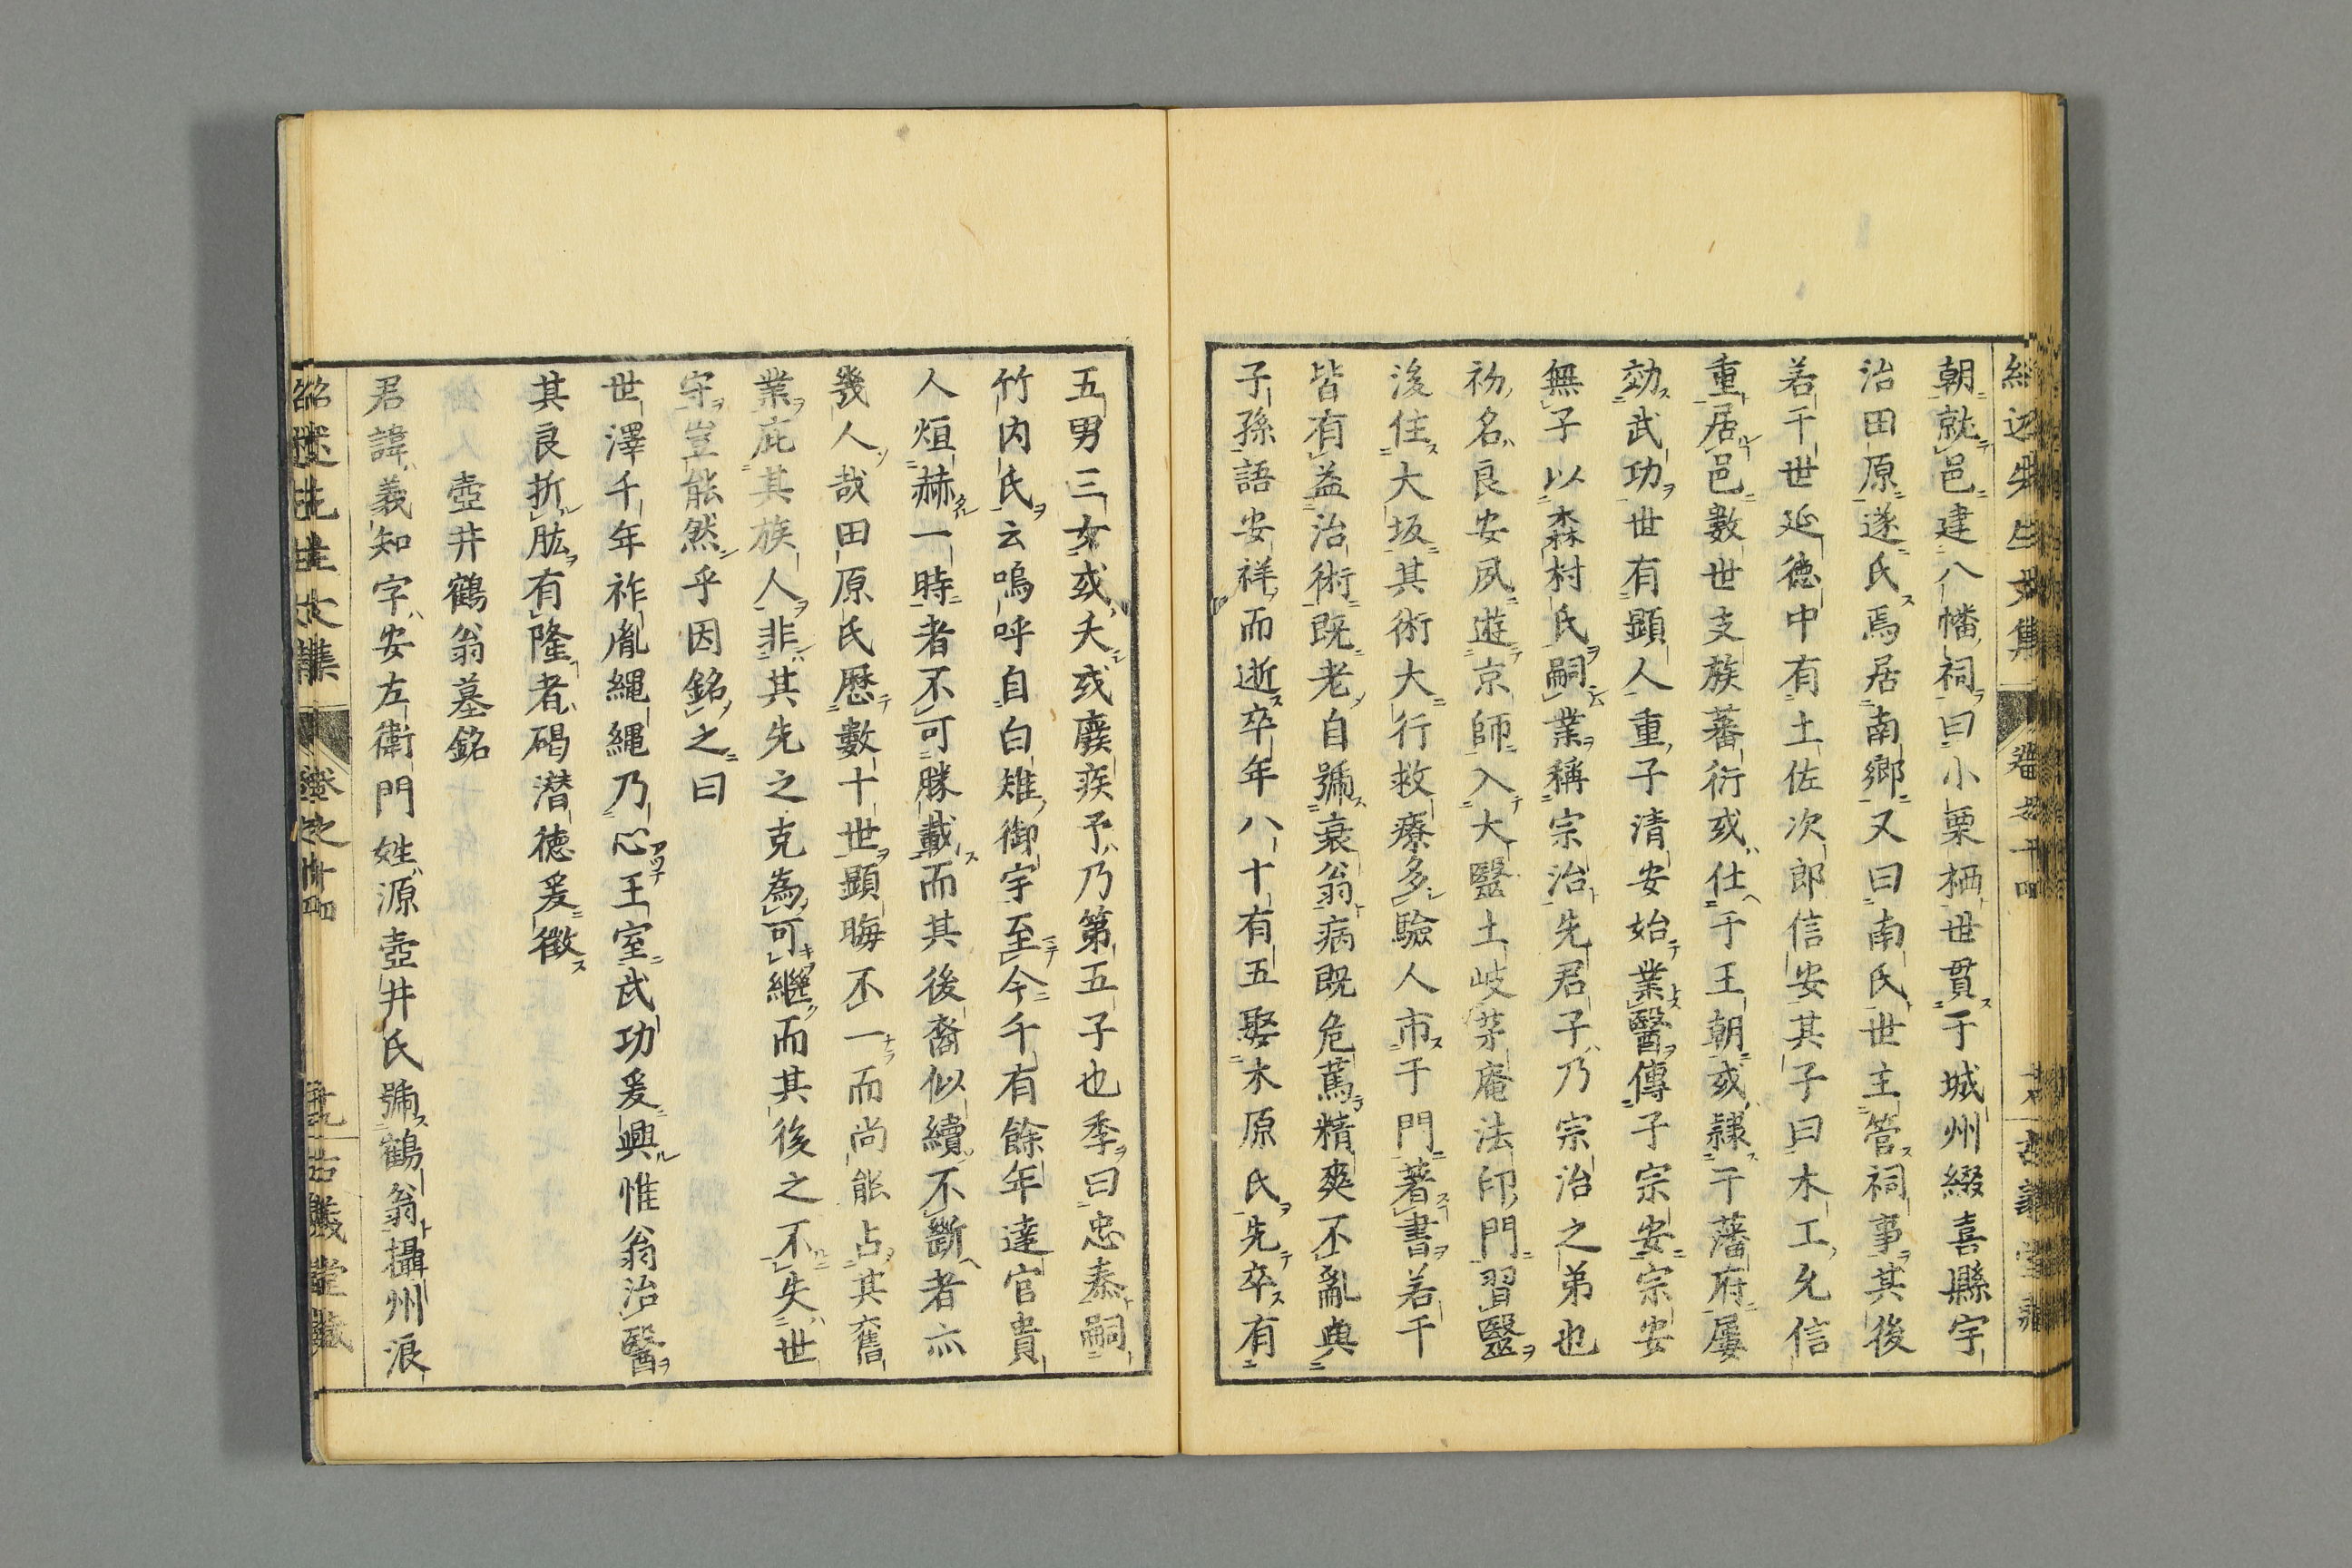 朝就邑建八幡祠曰小栗栖世貫于城州綴喜縣宇
治田原遂氏焉居南鄉又曰南氏世主管祠事其後
若干世延德中有土佐次郎信安其子曰木工允信
重居邑數世支族蕃衍或仕于王朝或隸于藩府屢
効武功世有顕人重子清安始業醫傳子宗安宗安
無子以森村氏嗣業稱宗治先君子乃宗治之弟也
初名良安夙遊京師入大醫土岐茅庵法印門習醫
後住大坂其術大行救療多驗人市于門著書若干
皆有益治術既老自號衰翁病既危篤精爽不亂與
子孫語安祥而逝卒年八十有五娶木原氏先卒有
五男三女或夭或廢疾予乃第五子也季曰忠泰嗣
竹内氏云嗚呼自白雉御宇至今千有餘年達官貴
人烜赫一時者不可勝載而其後裔似續不斷者亦
幾人哉田原氏歷數十世顕晦不一而尚能占其舊
業庇其族人非其先之克為可繼而其後之不失世
守豈能然乎因銘之曰
世澤千年祚胤縄縄乃心王室武功爰興惟翁治醫
其良折肱有隆者碣潜德爰徵
壺井鶴翁墓銘
君諱義知字安左衛門姓源壺井氏號鶴翁攝州浪
紹述先生文集
卷之十四
十九
古義堂藏